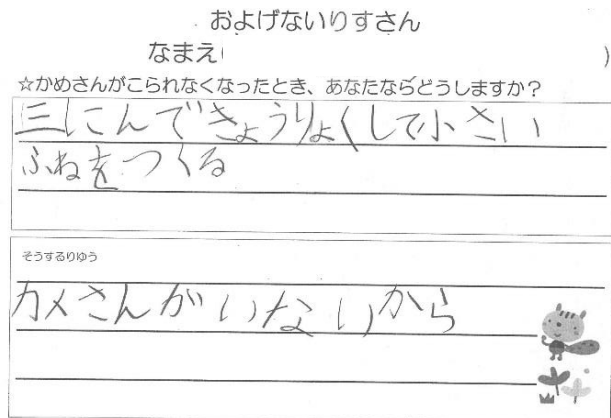 およげないりすさん
なまえ( )
☆かめさんがこられなくなったとき、あなたならどうしますか？
三にんできょうりょくして小さい
ふねをつくる
そうするりゆう
カメさんがいないから